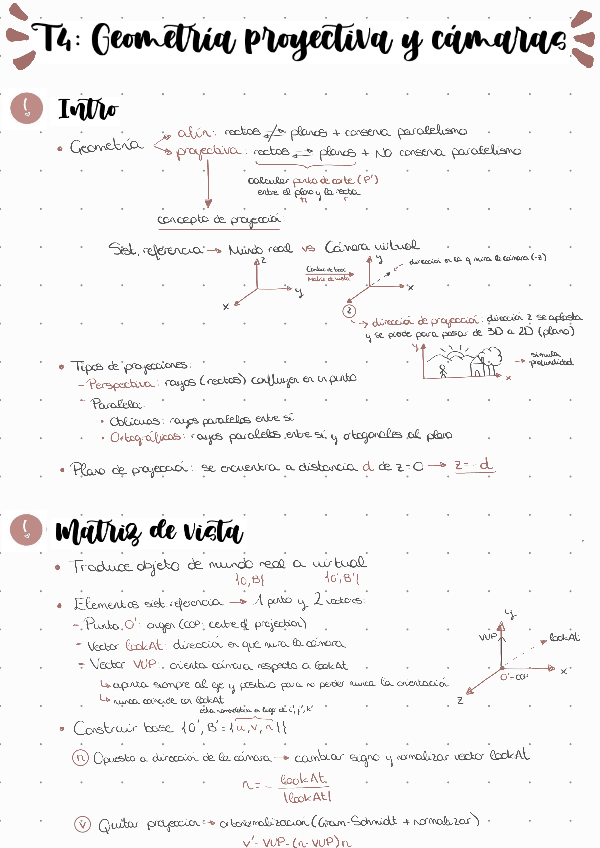 T4: Geometría proyectiva y cámaras
! Intro
• Geometría
afín: rectas ⇏ planos + conserva paralelismo
proyectiva: rectas ⇄ planos + No conserva paralelismo
calcular punto de corte (P')
entre el plano y la recta
π r
concepto de proyección:
Sist. referencia → Mundo real vs Cámara virtual
z
y
x
Cambio de base
Matriz de vista
y
x
z
dirección en la q mira la cámara (-z)
→ dirección de proyección: dirección z se aplasta
y se pierde para pasar de 3D a 2D (plano)
y
x
→ simula
profundidad
• Tipos de proyecciones:
- Perspectiva: rayos (rectas) confluyen en un punto
- Paralela:
• Oblicuas: rayos paralelos entre sí
• Ortográficas: rayos paralelos entre sí y ortogonales al plano
• Plano de proyección: se encuentra a distancia d de z=0 → z=-d
! Matriz de vista
• Traduce objeto de mundo real a virtual
{O,B} {O',B'}
• Elementos sist. referencia → 1 punto y 2 vectores:
- Punto O': origen (COP: centre of projection)
- Vector lookAt: dirección en que mira la cámara
- Vector VUP: orienta cámara respecto a lookAt
↳ apunta siempre al eje y positivo para no perder nunca la orientación
↳ nunca coincide con lookAt
y
VUP
lookAt
x
O'=COP
z
esta nomenclatura en lugar de i', j', k'
• Construir base {O', B'={u,v,n}}
n Opuesto a dirección de la cámara → cambiar signo y normalizar vector lookAt
n = - lookAt
|lookAt|
v Quitar proyección → ortonormalización (Gram-Schmidt + normalizar)
v' = VUP-(n·VUP)n